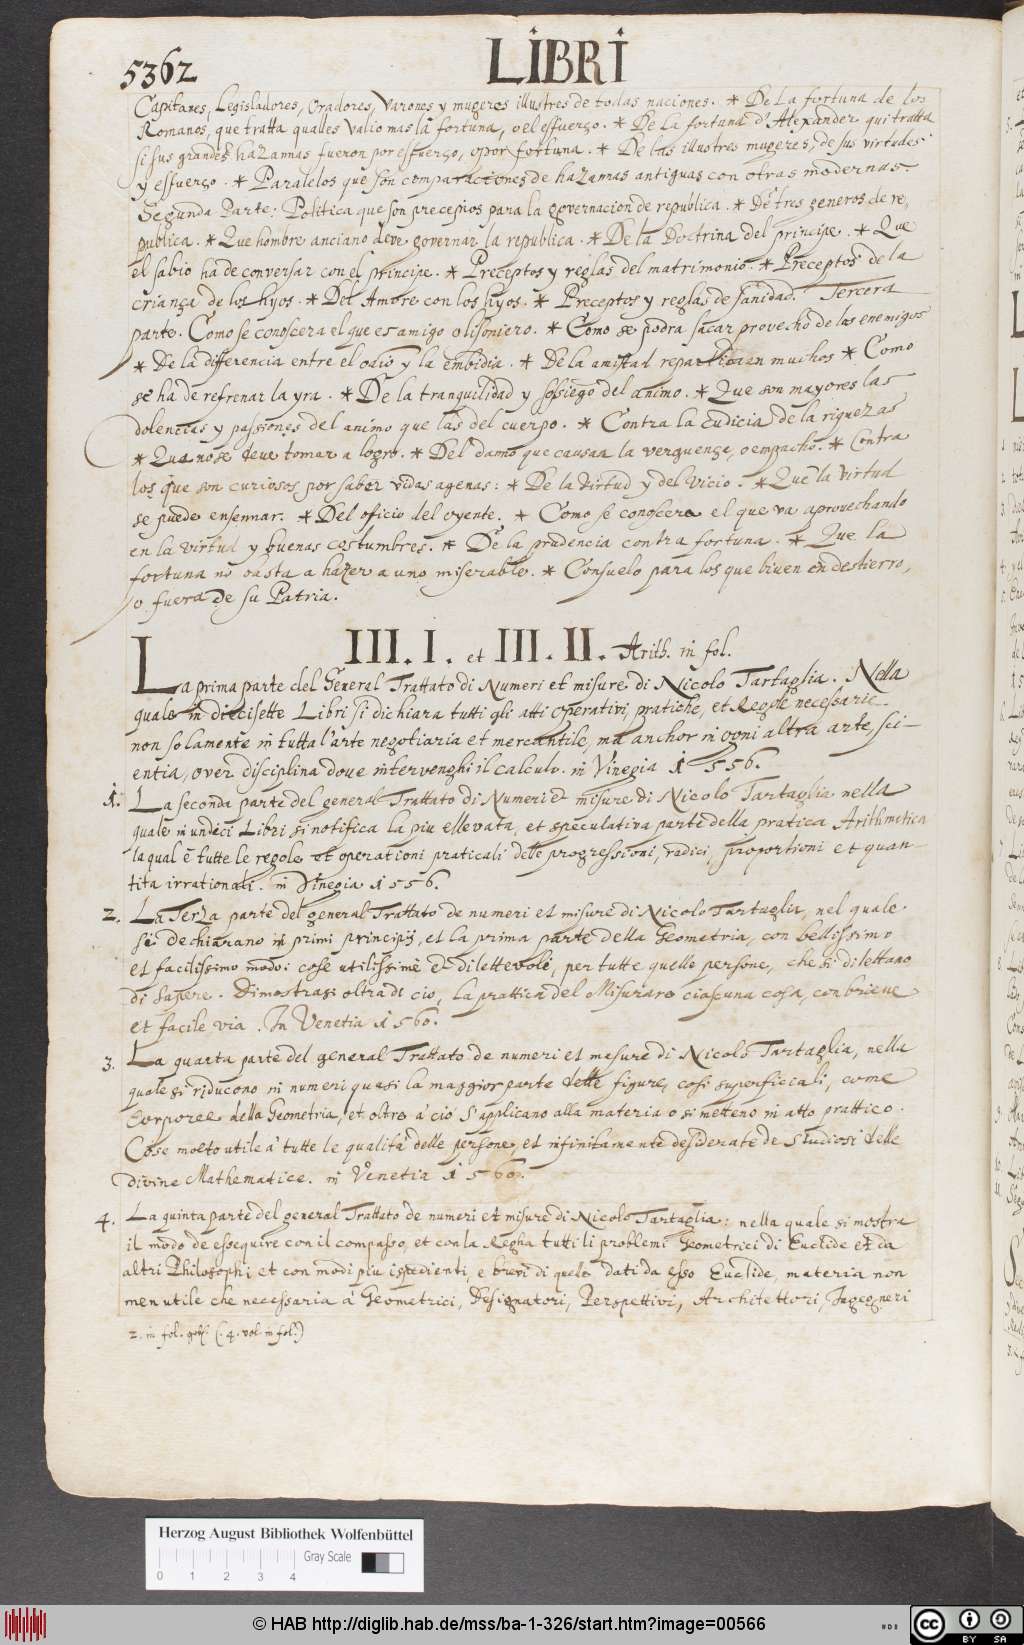 5362
LIBRI
Capitanes, Legisladores, Oradores, Varones y mugeres illustres de todas naciones. * De La fortuna de los
Romanos, que tratta qualles valio mas la fortuna, o el essuerço. * De la fortuna d'Alexander qui tratta
si sus grandes hazannas fueron por essuerço, o por fortuna. * De las illustres mugeres, de sus virtudes
y essuerço. * Paralelos que son comparaciones de hazannas antiguas con otras modernas.
Segunda Parte: Politica que son preceptos para la governacion de republica. * De tres generos de re,
publica. * Que hombre anciano deve governar la republica. * De la Doctrina del principe. * Que
el sabio ha de conversar con el principe. * Preceptos y reglas del matrimonio. * Preceptos de la
criança de los hyos. * Del Amore con los hyos. * Preceptos y reglas de sanidad. Tercera
parte. Como se conoscera el que es amigo o lisoniero. * Como se podra sacar provecho de los enemigos
* De la differencia entre el odio y la embidia. * De la amistad repartida en muchos * Como
se ha de refrenar la yra. * De la tranquilidad y sossiego del animo. * Que son mayores las
dolencias y passiones del animo que las del cuerpo. * Contra la cudicia de la riquezas
* Que no se deve tomar a logro. * Del danno que causaa la verguença, o empacho. * Contra
los que son curiosos por saber vidas agenas: * De la virtud y del vicio. * Que la virtud
se puede ensennar. * Del oficio del oyente. * Como se conoscera el que va aprovechando
en la virtud y buenas costumbres. * De la prudencia contra fortuna. * Que la
fortuna no basta a hazer a uno miserable. * Consuelo para los que biven en destierro,
o fuera de su Patria.
III. I. et III. II. Arith. in fol.
La prima parte del General Trattato di Numeri et misure di Nicolo Tartaglia. Nella
quale in diecisette Libri si dichiara tutti gli atti operativi, pratiche, et Regole necessarie
non solamente in tutta l'arte negotiaria et mercantile, ma anchor in ogni altra arte, sci-
entia, over disciplina dove intervenghi il calculo. in Vinegia 1556.
1. La seconda parte del general Trattato di Numeri et misure di Nicolo Tartaglia nella
quale in undeci Libri si notifica la piu ellevata, et speculativa parte della pratica Arithmetica
la qual è tutte le regole et operationi praticali delle progressioni, radici, proportioni et quan-
tita irrationali. in Vinegia 1556.
2. La Terza parte del general Trattato de numeri et misure di Nicolo Tartaglia, nel quale
si dechiarano i primi principij, et la prima parte della Geometria, con bellissimo
et facilissimo modo: cose utilissime et dilettevole, per tutte quelle persone, che si dilettano
di sapere. Dimostrasi oltra di cio, la prattica del Misurare ciascuna cosa, con brieve
et facile via. In Venetia 1560.
3. La quarta parte del general Trattato de numeri et mesure di Nicolo Tartaglia, nella
quale si riducono in numeri quasi la maggior parte delle figure, cosi superficiali, come
corporee della Geometria, et oltre à ciò s'applicano alla materia o si metteno in atto prattico.
Cose molto utile à tutte le qualità delle persone, et infinitamente desiderate de studiosi delle
divine Mathematice. in Venetia 1560.
4. La quinta parte del general Trattato de numeri et misure di Nicolo Tartaglia: nella quale si mostra
il modo de essequire con il compasso, et con la Regha tutti li problemi Geometrici di Euclide et da
altri Philosophi, et con modi piu ispedienti, e brevi di quelli dati da esso Euclide, materia non
men utile che necessaria à Geometrici, Desegnatori, Perspettivi, Architettori, Ingegneri
2. in fol. (. 4. vol in fol.)
Herzog August Bibliothek Wolfenbüttel
Gray Scale
0 1 2 3 4
© HAB http://diglib.hab.de/mss/ba-1-326/start.htm?image=00566
cc BY SA